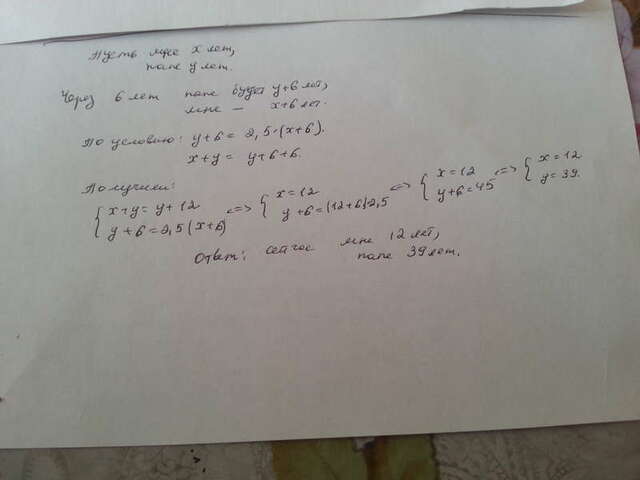 Пусть мне x лет,
папе y лет.
Через 6 лет папе будет y+6 лет,
мне – x+6 лет.
По условию: y+6 = 2,5·(x+6).
x+y = y+6+6.
Получили:
{ x+y = y+12 <=> { x=12 <=> { x=12 <=> { x=12
y+6=2,5(x+6) y+6=(12+6)·2,5 y+6=45 y=39.
Ответ: сейчас мне 12 лет,
папе 39 лет.